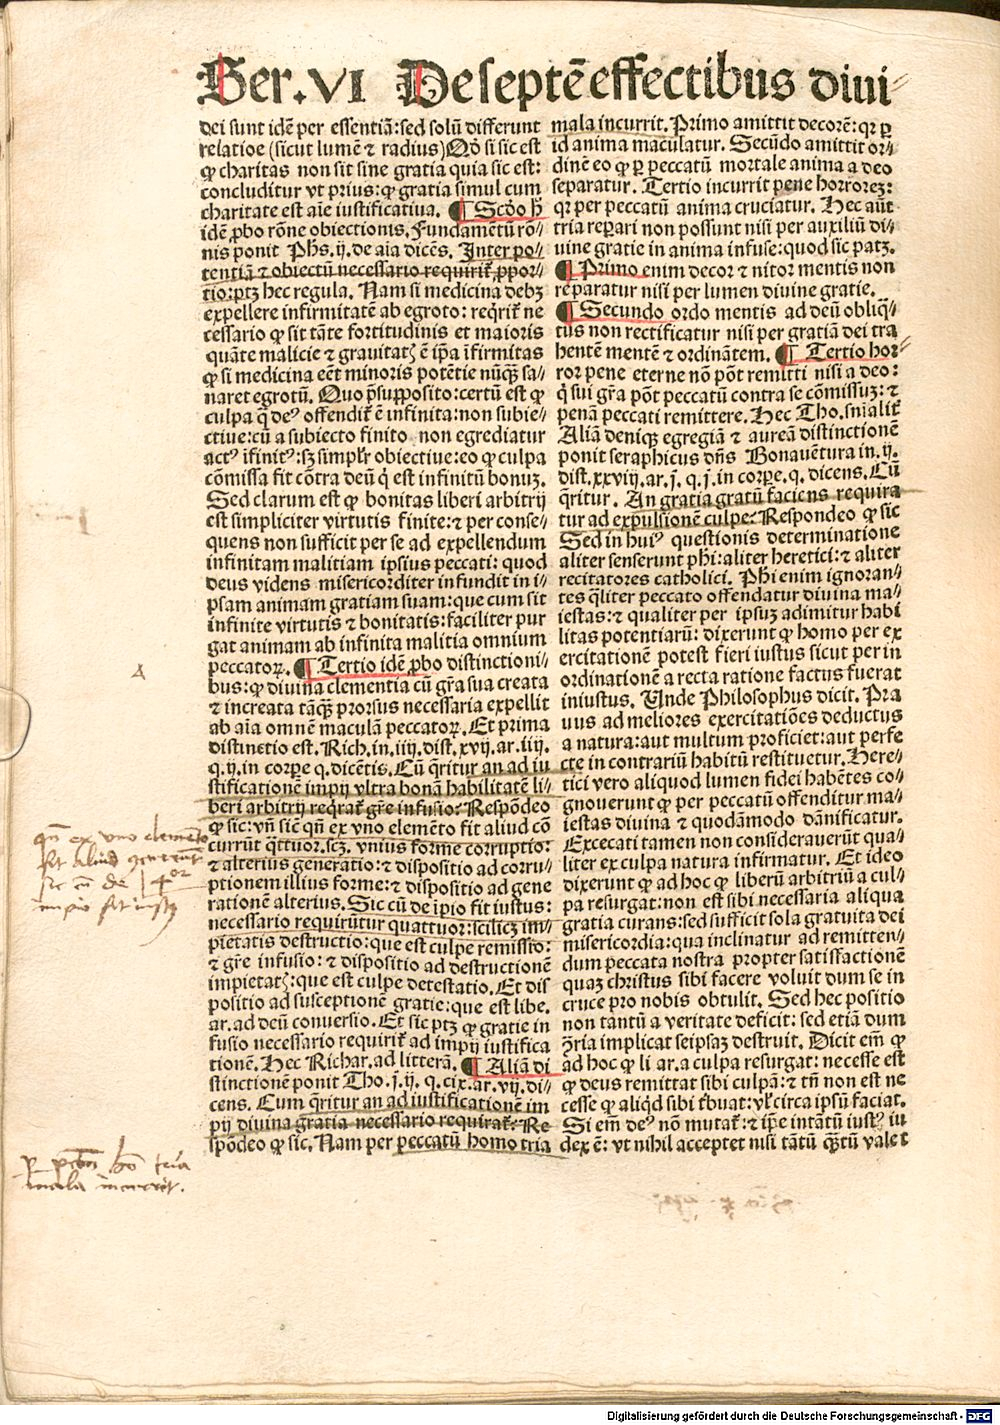 Ser. VI De septē effectibus divi⸗
dei sunt idē per essentiā: sed solū differunt
relatiōe (sicut lumē ⁊ radius) Qd̓ si sic est
ꝙ charitas non sit sine gratia quia sic est:
concluditur vt prius: ꝙ gratia simul cum
charitate est aīe iustificatiua. ¶ Scd̓o h̄
idē ꝓbo rōne obiectionis. Fundamētū rō⸗
nis ponit Ph̓s. ij. de aīa dicēs. Inter po⸗
tentiā ⁊ obiectū necessario requirit᷑ ꝓpor⸗
tio: ptꝫ hec regula. Nam si medicina debꝫ
expellere infirmitatē ab egroto: reqͥrit᷑ ne
cessario ꝙ sit tāte fortitudinis et maioris
quāte malicie ⁊ grauitatꝭ ē ip̄a īfirmitas
ꝙ si medicina eēt minoris potētie nūqꝫ sa⸗
naret egrotū. Quo p̄supposito: certū est ꝙ
culpa q̄ deꝰ offendit᷑ ē infinita: non subie⸗
ctiue: cū a subiecto finito non egrediatur
actꝰ īfinitꝰ: sꝫ simplr̄ obiectiue: eo ꝙ culpa
cōmissa fit cōtra deū qͥ est infinitū bonuꝫ.
Sed clarum est ꝙ bonitas liberi arbitrij
est simpliciter virtutis finite: ⁊ per conse⸗
quens non sufficit per se ad expellendum
infinitam malitiam ipsius peccati: quod
deus videns misericorditer infundit in i⸗
psam animam gratiam suam: que cum sit
infinite virtutis ⁊ bonitatis: faciliter pur
gat animam ab infinita malitia omnium
peccatoꝝ. ¶ Tertio idē ꝓbo distinctioni⸗
bus: ꝙ divina clementia cū gr̄a sua creata
⁊ increata tāqꝫ prorsus necessaria expellit
ab aīa omnē maculā peccatoꝝ. Et prima
distinctio est. Rich. in. iiij. dist. xvij. ar. iiij.
q. ij. in corpe q. dicētis. Cū q̄ritur an ad iu
stificationē impij vltra bonā habilitatē li⸗
beri arbitrij reqͥrat᷑ gr̄e infusio: Respōdeo
ꝙ sic: vn̄ sic qn̄ ex vno elemēto fit aliud cō
currūt qͣttuor. scꝫ. vnius forme corruptio:
⁊ alterius generatio: ⁊ dispositio ad corru⸗
ptionem illius forme: ⁊ dispositio ad gene
rationē alterius. Sic cū de īpio fit iustus:
necessario requirūtur quattuor: scilicꝫ im⸗
pietatis destructio: que est culpe remissio:
⁊ gr̄e infusio: ⁊ dispositio ad destructionē
impietatꝭ: que est culpe detestatio. Et dis
positio ad susceptionē gratie: que est libe.
ar. ad deū conversio. Et sic ptꝫ ꝙ gratie in
fusio necessario requirit᷑ ad impij iustifica
tionē. Hec Richar. ad litterā. ¶ Aliā di
stinctionē ponit Tho. j. ij. q. cix. ar. vij. di⸗
cens. Cum q̄ritur an ad iustificationē im
pij divina gratia necessario requirat᷑: Re
spōdeo ꝙ sic. Nam per peccatū homo tria
mala incurrit. Primo amittit decorē: qꝛ ꝑ
id anima maculatur. Secūdo amittit or⸗
dinē eo ꝙ ꝑ peccatū mortale anima a deo
separatur. Tertio incurrit pene horroreꝫ:
qꝛ per peccatū anima cruciatur. Hec aūt
tria repari non possunt nisi per auxiliū di⸗
uine gratie in anima infuse: quod sic patꝫ.
¶ Primo enim decor ⁊ nitor mentis non
reparatur nisi per lumen divine gratie.
¶ Secundo ordo mentis ad deū obliq̄⸗
tus non rectificatur nisi per gratiā dei tra
hentē mentē ⁊ ordinātem. ¶ Tertio hor⸗
ror pene eterne nō pōt remitti nisi a deo:
qͥ sui gr̄a pōt peccatū contra se cōmissuꝫ: ⁊
penā peccati remittere. Hec Tho. snīalit᷑
Aliā deniqꝫ egregiā ⁊ aureā distinctionē
ponit seraphicus dn̄s Bonauētura in. ij.
dist. xxviij. ar. j. q. j. in corpe. q. dicens. Cū
q̄ritur. An gratia gratū faciens requira
tur ad expulsionē culpe: Respondeo ꝙ sic
Sed in huiꝰ questionis determinatione
aliter senserunt ph̓i: aliter heretici: ⁊ aliter
recitatores catholici. Ph̓i enim ignoran⸗
tes q̄liter peccato offendatur divina ma⸗
iestas: ⁊ qualiter per ipsuꝫ adimitur habi
litas potentiarū: dixerunt ꝙ homo per ex
ercitationē potest fieri iustus sicut per in
ordinationē a recta ratione factus fuerat
iniustus. Unde Philosophus dicit. Pra
uus ad meliores exercitatiōes deductus
a natura: aut multum proficiet: aut perfe
cte in contrariū habitū restituetur. Here⸗
tici vero aliquod lumen fidei habētes co⸗
gnouerunt ꝙ per peccatū offenditur ma⸗
iestas divina ⁊ quodāmodo dānificatur.
Excecati tamen non considerauerūt qua⸗
liter ex culpa natura infirmatur. Et ideo
dixerunt ꝙ ad hoc ꝙ liberū arbitriū a cul⸗
pa resurgat: non est sibi necessaria aliqua
gratia curans: sed sufficit sola gratuita dei
misericordia: qua inclinatur ad remitten⸗
dum peccata nostra propter satisfactionē
quaꝫ christus sibi facere voluit dum se in
cruce pro nobis obtulit. Sed hec positio
non tantū a veritate deficit: sed etiā dum
ꝯ̄ria implicat seipsaꝫ destruit. Dicit em̄ ꝙ
ad hoc ꝙ li ar. a culpa resurgat: necesse est
ꝙ deus remittat sibi culpā: ⁊ tn̄ non est ne
cesse ꝙ aliqͥd sibi tͥbuat: vl̓ circa ipsū faciat.
Si em̄ deꝰ nō mutat᷑: ⁊ ip̄e intātū iustꝰ iu
dex ē: vt nihil acceptet nisi tātū qͣtū valet
qn̄ ex vno elemēto
fit aliud
sic cū de 4or
impio fit iustꝰ
ꝑ pctm̄ hō tria
mala incurrit.
Digitalisierung gefördert durch die Deutsche Forschungsgemeinschaft - DFG